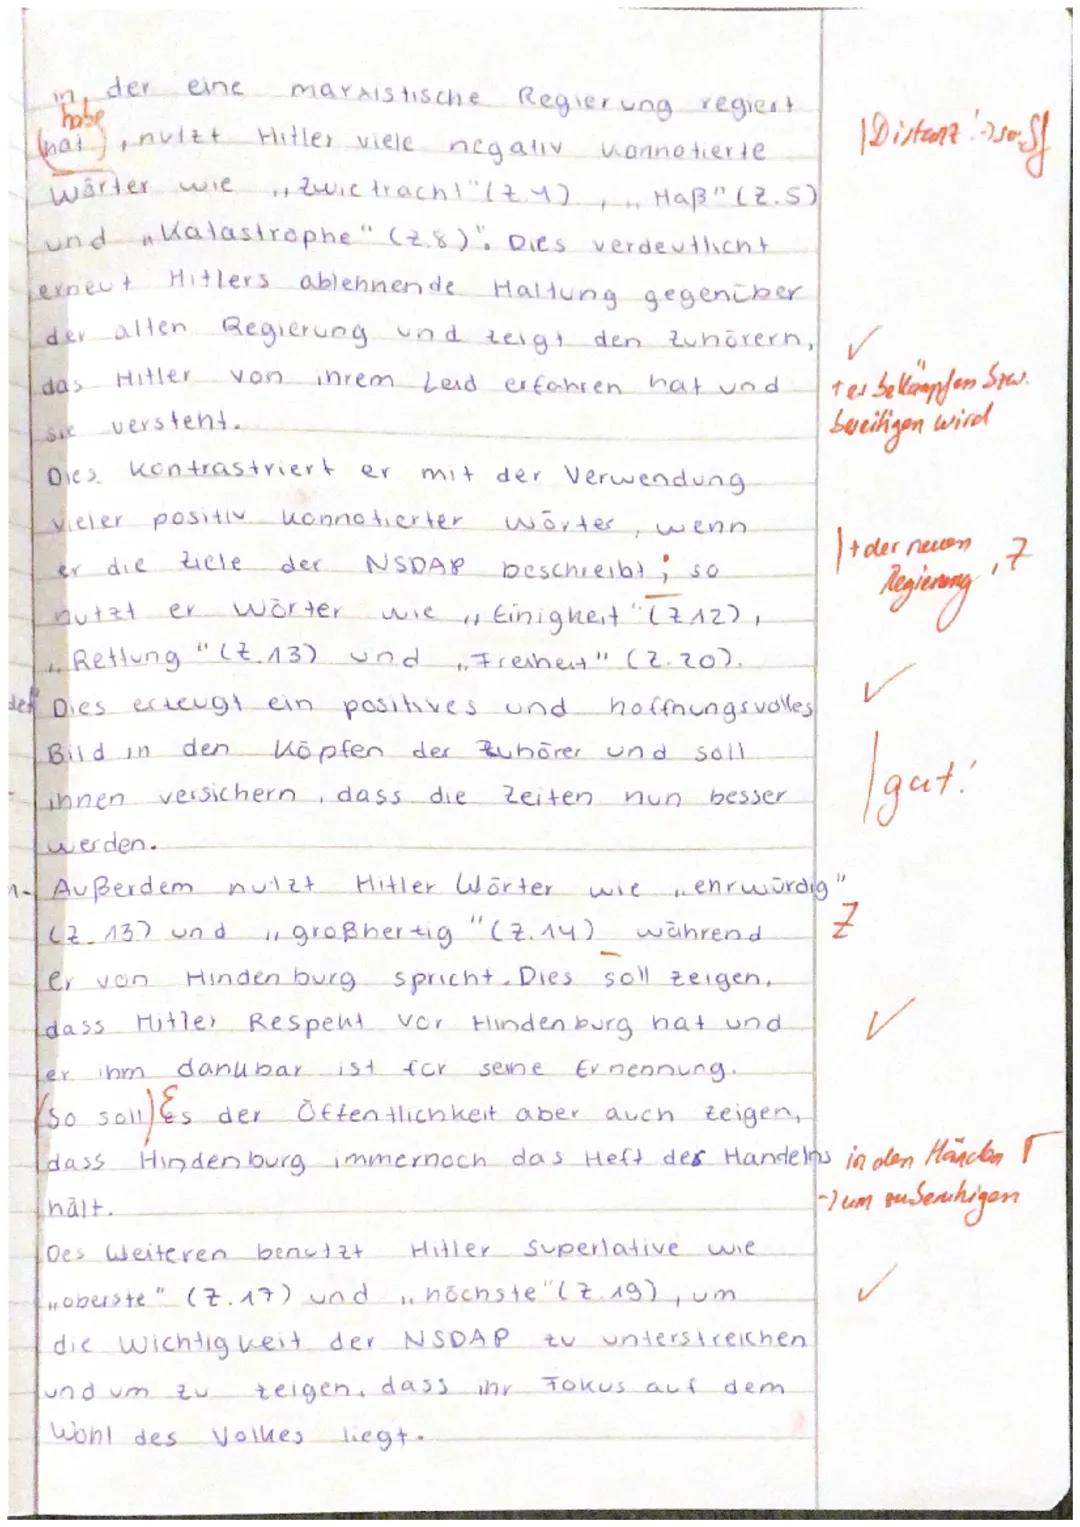 in der eine marxistische Regierung regiert
habe
(hat), nutzt Hitler viele negativ konnotierte
|Distanz!
Wörter wie „Zwietracht" (Z.4), „Haß" (Z.5)
und „Katastrophe" (Z.8)". Dies verdeutlicht
erneut Hitlers ablehnende Haltung gegenüber
der alten Regierung und zeigt den Zuhörern,
✓
das Hitler von ihrem Leid erfahren hat und
+ er bekämpfen bzw.
sie versteht.
beseitigen wird
Dies kontrastriert er mit der Verwendung
vieler positiv konnotierter Wörter, wenn
er die Ziele der NSDAP beschreibt; so
|+ der neuen Regierung, Z
nutzt er Wörter wie „Einigkeit" (Z.12),
„Rettung" (Z.13) und „Freiheit" (Z.20).
✓
Dies erzeugt ein positives und hoffnungsvolles
Bild in den Köpfen der Zuhörer und soll
|gut!
ihnen versichern, dass die Zeiten nun besser
werden.
Außerdem nutzt Hitler Wörter wie „ehrwürdig"
(Z.13) und „großhertig" (Z.14) während
Z
er von Hindenburg spricht. Dies soll zeigen,
dass Hitler Respekt vor Hindenburg hat und
✓
er ihm dankbar ist für seine Ernennung.
(So soll) Es der Öffentlichkeit aber auch zeigen,
dass Hindenburg immernoch das Heft des Handelns in den Händen
hält.
-> um zu beruhigen
Des Weiteren benutzt Hitler Superlative wie
„oberste" (Z.17) und „höchste" (Z.19), um
✓
die Wichtigkeit der NSDAP zu unterstreichen
und um zu zeigen, dass ihr Fokus auf dem
Wohl des Volkes liegt.